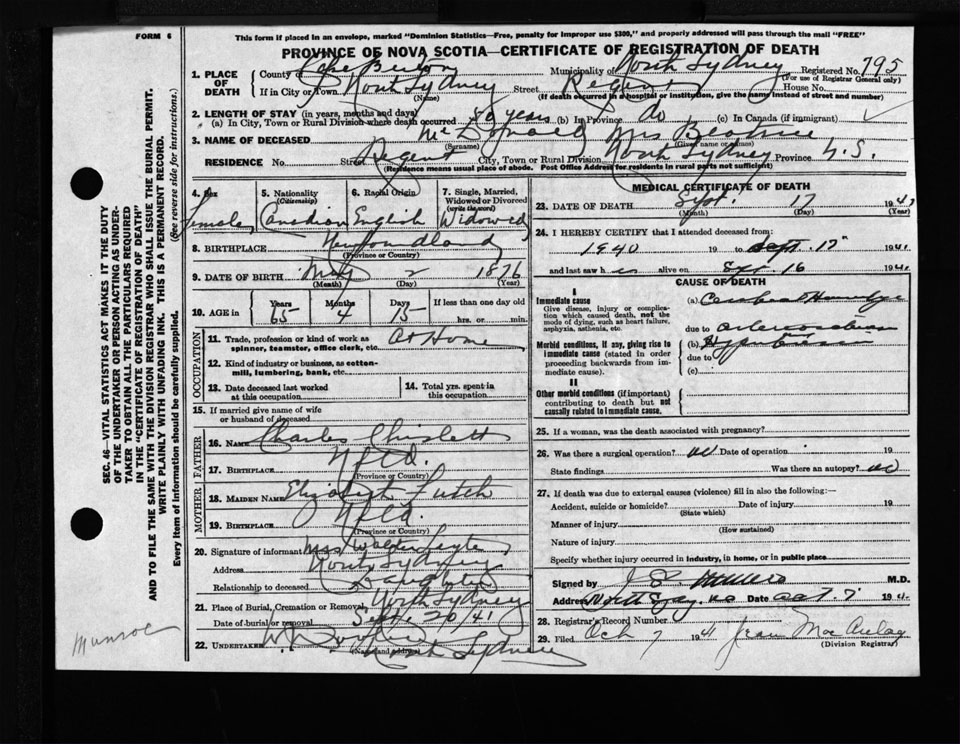 FORM 6
This form if placed in an envelope, marked "Dominion Statistics—Free, penalty for improper use $300," and properly addressed will pass through the mail "FREE"
PROVINCE OF NOVA SCOTIA—CERTIFICATE OF REGISTRATION OF DEATH
1. PLACE OF DEATH County Cape Breton Municipality of North Sydney Registered No. 795
(For use of Registrar General only)
If in City or Town North Sydney Street Regent House No.
(Name) (If death occurred in a hospital or institution, give the name instead of street and number)
2. LENGTH OF STAY (in years, months and days)
(a) In City, Town or Rural Division where death occurred years (b) In Province do (c) In Canada (if immigrant)
3. NAME OF DECEASED McDonald Mrs Beatrice
(Surname) (Given name or names)
RESIDENCE No. Street Regent City, Town or Rural Division North Sydney Province N.S.
(Residence means usual place of abode. Post Office Address for residents in rural parts not sufficient)
4. Sex Female
5. Nationality (Citizenship) Canadian
6. Racial Origin English
7. Single, Married, Widowed or Divorced (write the word) Widowed
8. BIRTHPLACE Newfoundland
(Province or Country)
9. DATE OF BIRTH May 2 1876
(Month) (Day) (Year)
10. AGE in Years 65 Months 4 Days 15 If less than one day old hrs. or min.
OCCUPATION
11. Trade, profession or kind of work as spinner, teamster, office clerk, etc. At Home
12. Kind of industry or business, as cotton-mill, lumbering, bank, etc.
13. Date deceased last worked at this occupation
14. Total yrs. spent in this occupation
15. If married give name of wife or husband of deceased
FATHER
16. Name Charles Chislett
17. Birthplace Nfld.
(Province or Country)
MOTHER
18. Maiden Name Elizabeth
19. Birthplace Nfld.
(Province or Country)
20. Signature of informant Mrs Walter
Address North Sydney
Relationship to deceased Daughter
21. Place of Burial, Cremation or Removal North Sydney
Date of burial or removal Sept 20/41
22. UNDERTAKER North Sydney
(Name and address)
MEDICAL CERTIFICATE OF DEATH
23. DATE OF DEATH Sept. 17 194
(Month) (Day) (Year)
24. I HEREBY CERTIFY that I attended deceased from:
1940 19 to Sept. 17 1941
and last saw h alive on Sept. 16 194
CAUSE OF DEATH
I
Immediate cause
Give disease, injury or complication which caused death, not the mode of dying, such as heart failure, asphyxia, asthenia, etc.
(a) Cerebral Hemorrhage
due to
Morbid conditions, if any, giving rise to immediate cause (stated in order proceeding backwards from immediate cause).
(b) Hypertension
due to
(c)
II
Other morbid conditions (if important) contributing to death but not causally related to immediate cause.
25. If a woman, was the death associated with pregnancy?
26. Was there a surgical operation? no Date of operation 19
State findings Was there an autopsy? no
27. If death was due to external causes (violence) fill in also the following:—
Accident, suicide or homicide? Date of injury 19
(State which)
Manner of injury
(How sustained)
Nature of injury
Specify whether injury occurred in industry, in home, or in public place
Signed by M.D.
Address North Sydney. Date Oct 7. 194
28. Registrar's Record Number
29. Filed Oct 7 1941 Jean MacAulay
(Division Registrar)
SEC. 46—VITAL STATISTICS ACT MAKES IT THE DUTY
OF THE UNDERTAKER OR PERSON ACTING AS UNDER-
TAKER TO OBTAIN ALL THE PARTICULARS REQUIRED
IN THE "CERTIFICATE OF REGISTRATION OF DEATH"
AND TO FILE THE SAME WITH THE DIVISION REGISTRAR WHO SHALL ISSUE THE BURIAL PERMIT.
WRITE PLAINLY WITH UNFADING INK. THIS IS A PERMANENT RECORD.
Every item of information should be carefully supplied. (See reverse side for instructions.)
Munroe